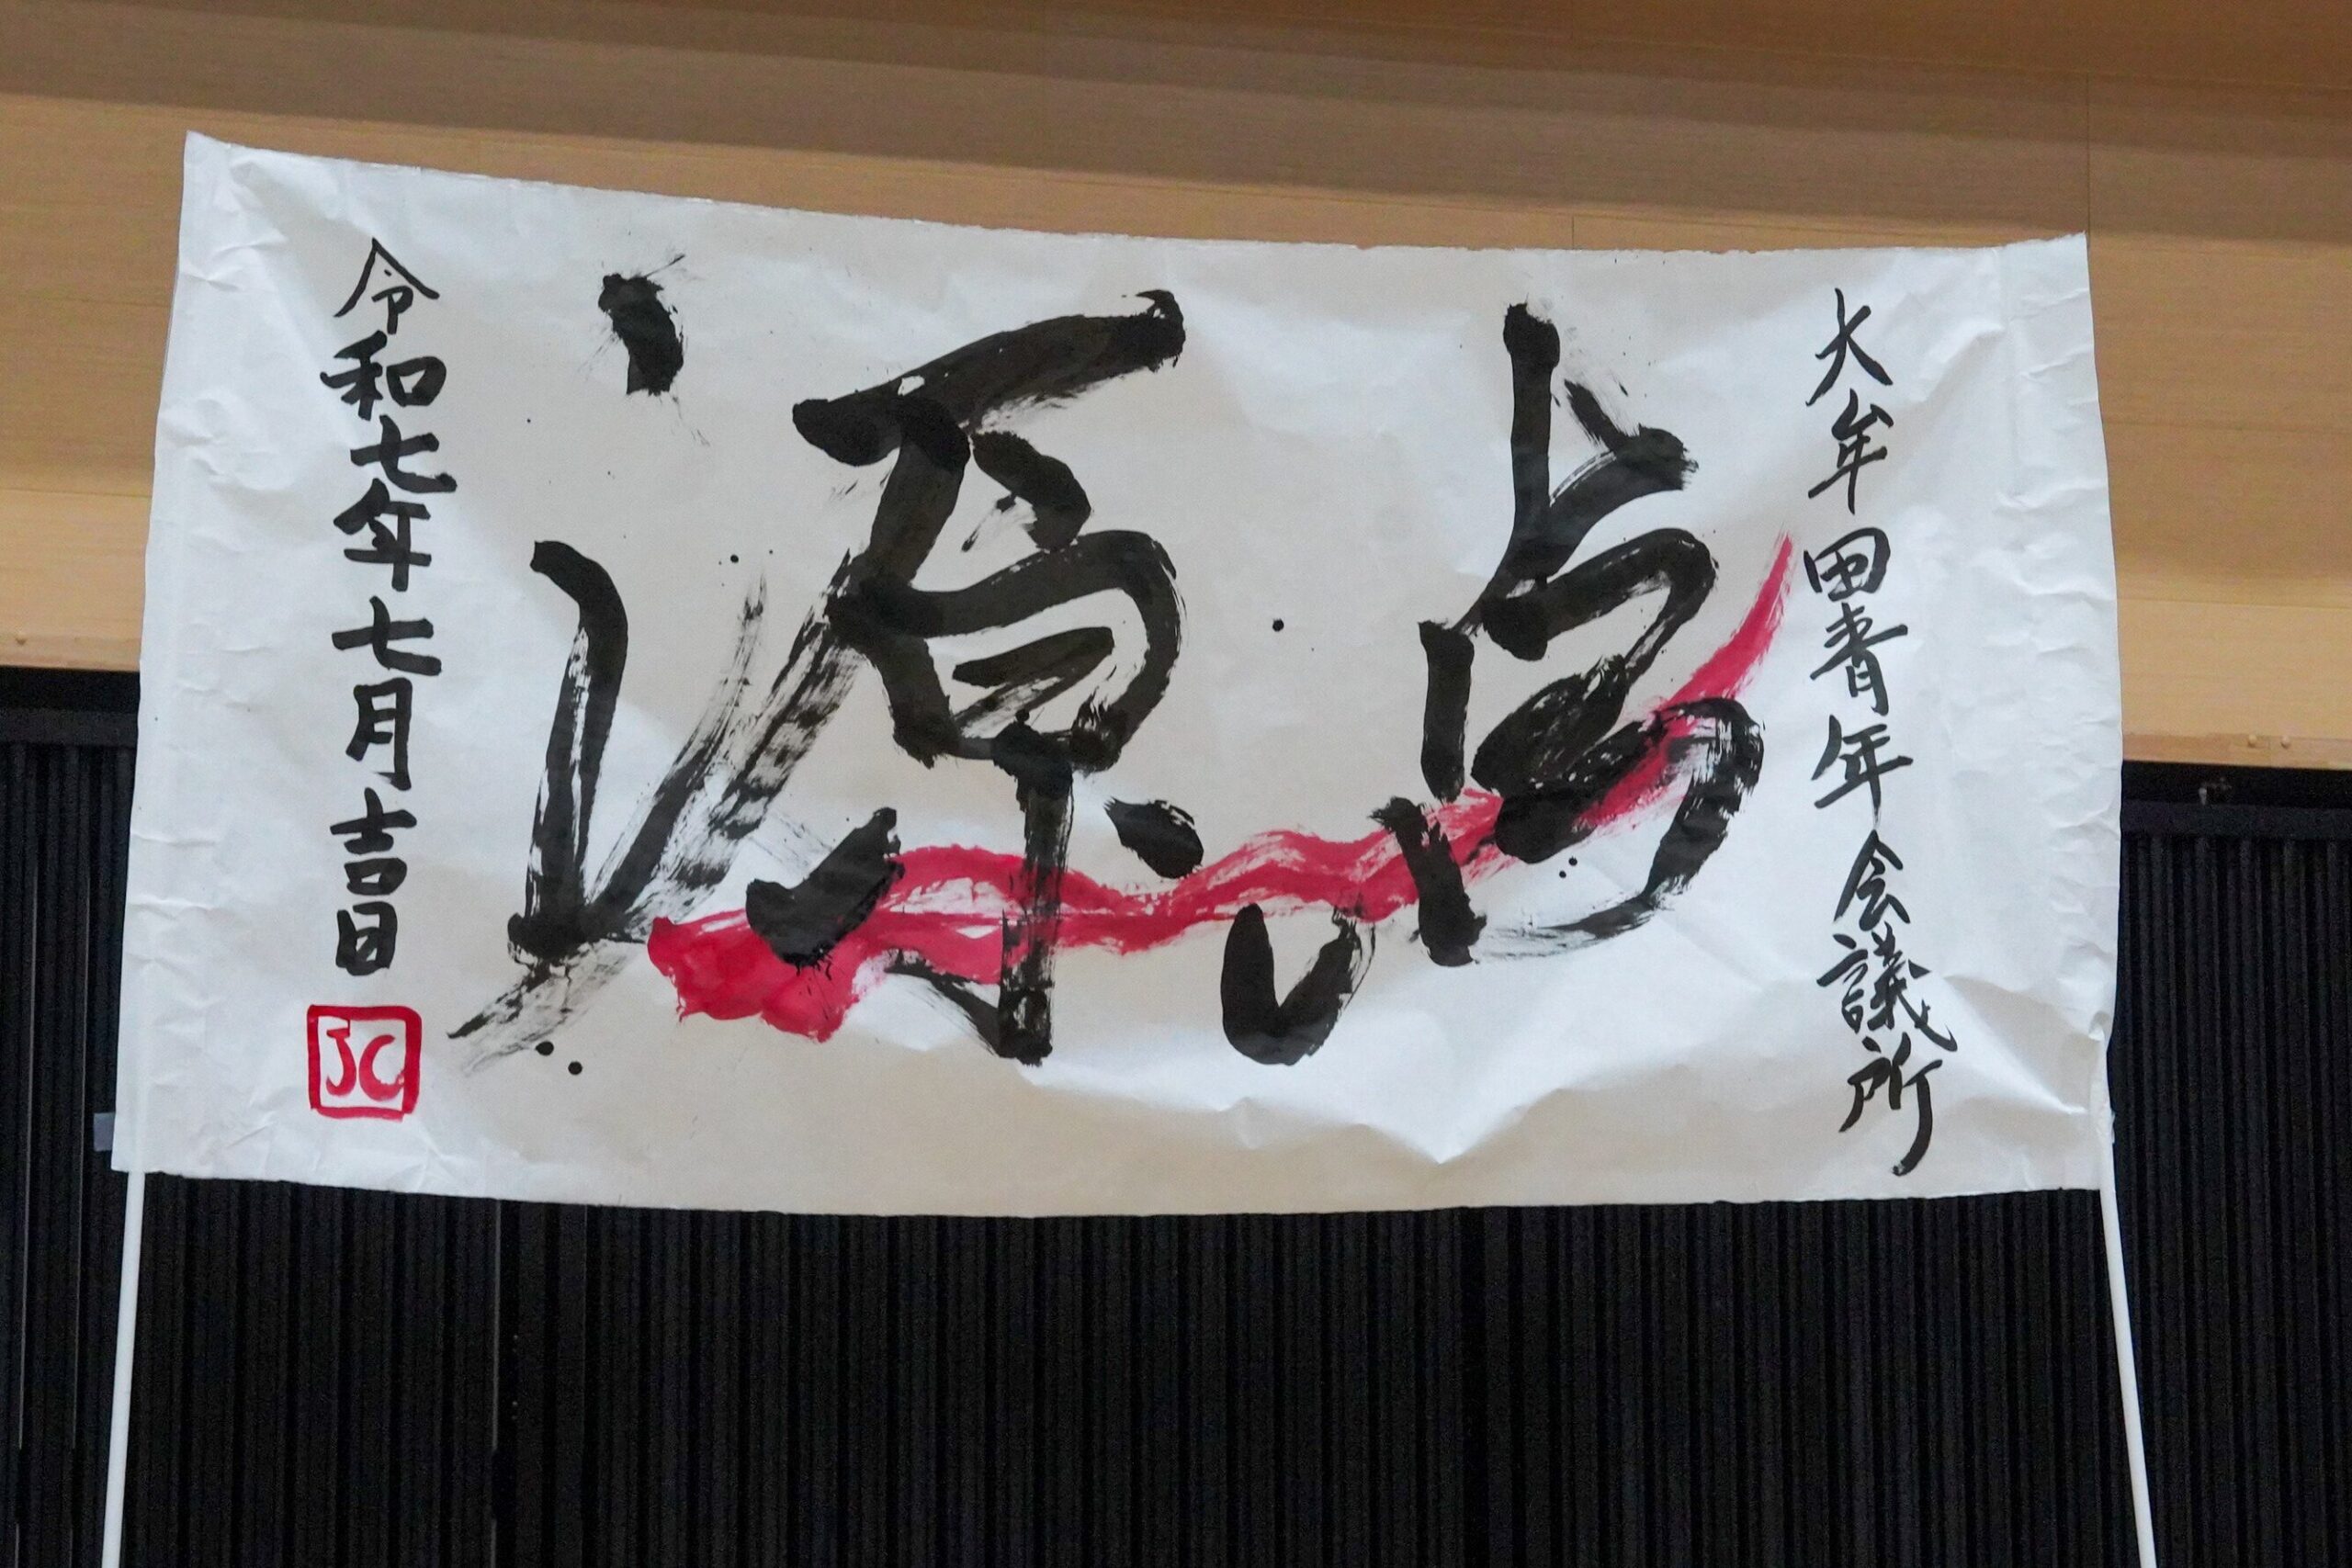 大牟田青年会議所
源点
令和七年七月吉日
JC